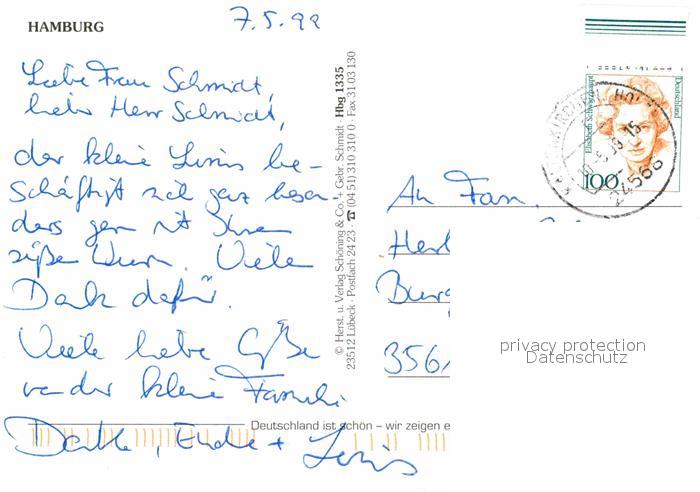 HAMBURG
7.5.99
Liebe Frau Schmidt,
liebe Herr Schmidt,
der kleine Linus be-
schäftigt sich ganz beson-
ders gern mit Ihrem
süßen Wurm. Viele
Dank dafür.
Viele liebe Grüße
von der kleinen Familie
+ Linus
© Herst. u. Verlag Schöning & Co. + Gebr. Schmidt · Hbg 1335
23512 Lübeck · Postfach 24 23 · ☎ (04 51) 310 310 0 · Fax 31 03 130
Deutschland ist schön – wir zeigen e
Deutschland
Elisabeth Schwarzhaupt
100
24568
An Fam.
Herb
Burg
356
privacy protection
Datenschutz